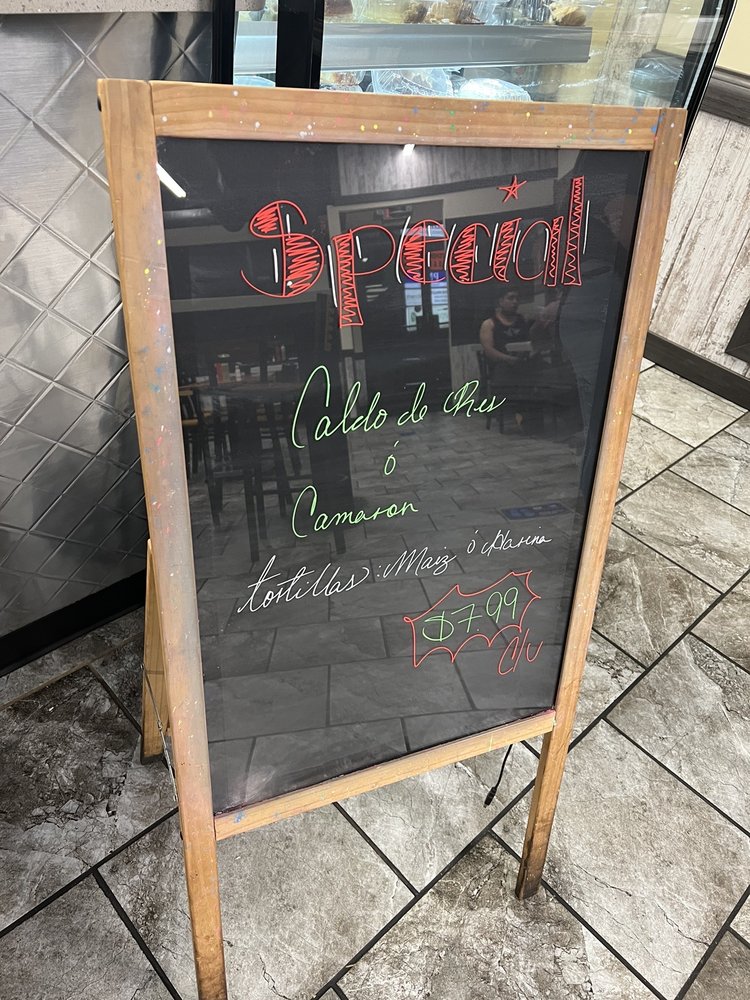 Special
Caldo de Res
ó
Camaron
tortillas: Maiz ó Harina
$7.99
C/U